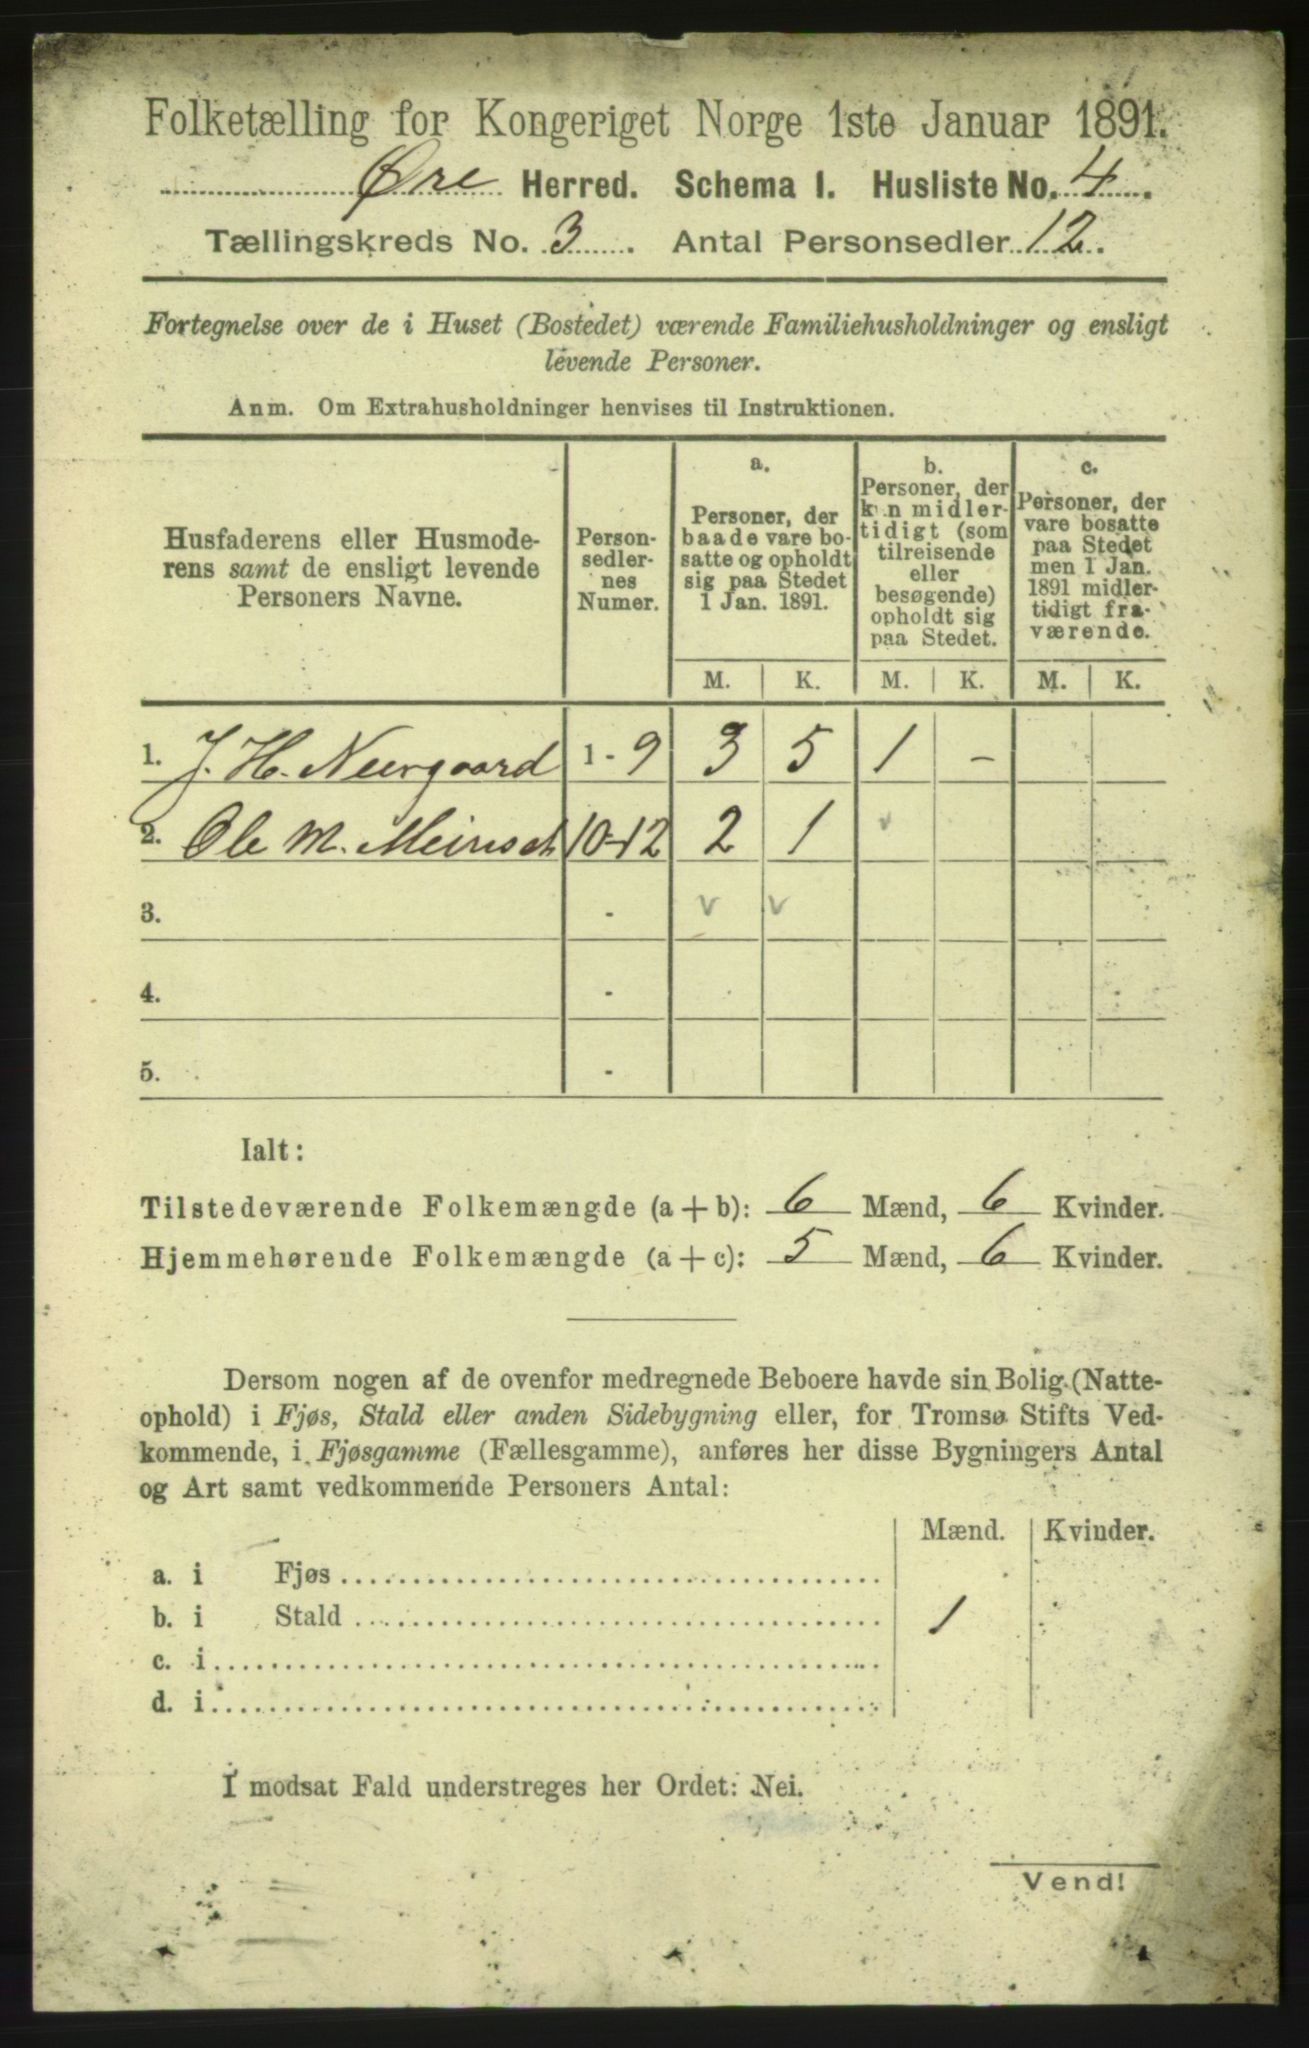 Folketælling for Kongeriget Norge 1ste Januar 1891.
Øre Herred. Schema I. Husliste No. 4.
Tællingskreds No. 3. Antal Personsedler 12.
Fortegnelse over de i Huset (Bostedet) værende Familiehusholdninger og ensligt
levende Personer.
Anm. Om Extrahusholdninger henvises til Instruktionen.
Husfaderens eller Husmode-
rens samt de ensligt levende
Personers Navne.
Person-
sedler-
nes
Numer.
a.
Personer, der
baade vare bo-
satte og opholdt
sig paa Stedet
1 Jan. 1891.
b.
Personer, der
kun midler-
tidigt (som
tilreisende
eller
besøgende)
opholdt sig
paa Stedet.
c.
Personer, der
vare bosatte
paa Stedet
men 1 Jan.
1891 midler-
tidigt fra-
værende.
M. K. M. K. M. K.
1. J. H. Neergaard 1-9 3 5 1 -
2. Ole M. 10-12 2 1 v
3. - v v
4. -
5. -
Ialt:
Tilstedeværende Folkemængde (a+b): 6 Mænd, 6 Kvinder.
Hjemmehørende Folkemængde (a+c): 5 Mænd, 6 Kvinder.
Dersom nogen af de ovenfor medregnede Beboere havde sin Bolig (Natte-
ophold) i Fjøs, Stald eller anden Sidebygning eller, for Tromsø Stifts Ved-
kommende, i Fjøsgamme (Fællesgamme), anføres her disse Bygningers Antal
og Art samt vedkommende Personers Antal:
Mænd. Kvinder.
a. i Fjøs
b. i Stald 1
c. i
d. i
I modsat Fald understreges her Ordet: Nei.
Vend!